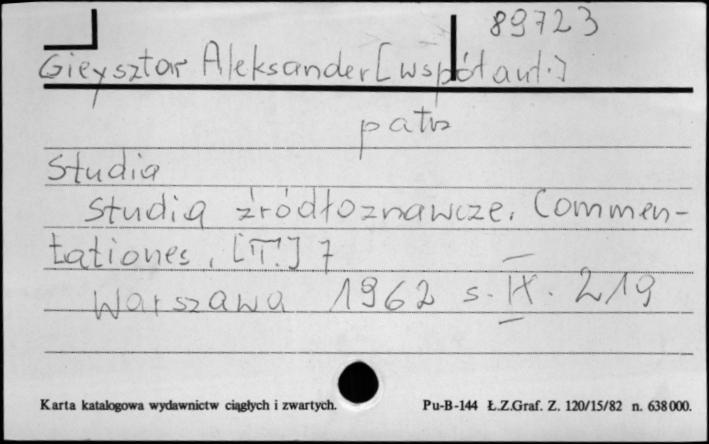 89723
Gieysztor Aleksander [współaut.]
patrz
Studia
Studia źródłoznawcze. Commen-
tationes. [T.] 7
Warszawa 1962 s. IX. 219
Karta katalogowa wydawnictw ciągłych i zwartych.
Pu-B-144 Ł.Z.Graf. Z. 120/15/82 n. 638000.